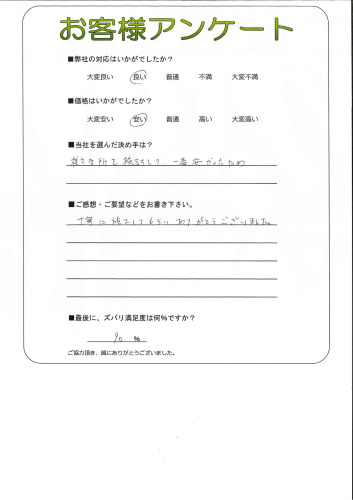 お客様アンケート
■弊社の対応はいかがでしたか?
大変良い 良い 普通 不満 大変不満
■価格はいかがでしたか?
大変安い 安い 普通 高い 大変高い
■当社を選んだ決め手は?
数ヶ所を検討して 一番安かったため
■ご感想・ご要望などをお書き下さい。
丁寧に してもらい ありがとうございました。
■最後に、ズバリ満足度は何%ですか?
90 %
ご協力頂き、誠にありがとうございました。